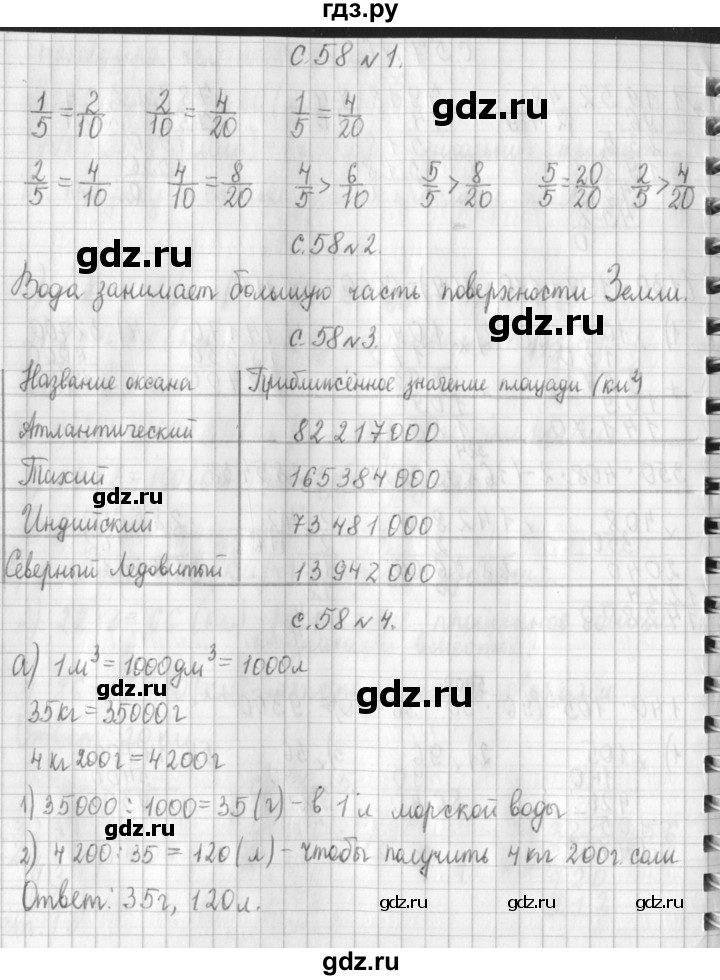 гдз.ру
с.58 №1.
1/5 = 2/10 2/10 = 4/20 1/5 = 4/20
gdz.ru
2/5 = 4/10 4/10 = 8/20 4/5 > 6/10 5/5 > 8/20 5/5 = 20/20 2/5 > 4/20
gdz.ru
с.58 №2.
Вода занимает большую часть поверхности Земли.
gdz.ru
с.58 №3.
Название океана Приближённое значение площади (км²)
Атлантический 82 217 000
Тихий 165 384 000
gdz.ru
Индийский 73 481 000
Северный Ледовитый 13 942 000
с.58 №4.
а) 1м³ = 1000дм³ = 1000л
gdz.ru gdz.ru
35кг = 35000г
4кг 200г = 4200г
1) 35000 : 1000 = 35 (г) – в 1 л морской воды
gdz.ru
2) 4200 : 35 = 120 (л) – чтобы получить 4 кг 200г. соли
Ответ: 35г, 120л.
gdz.ru gdz.ru gdz.ru
gdz.ru
gdz.ru